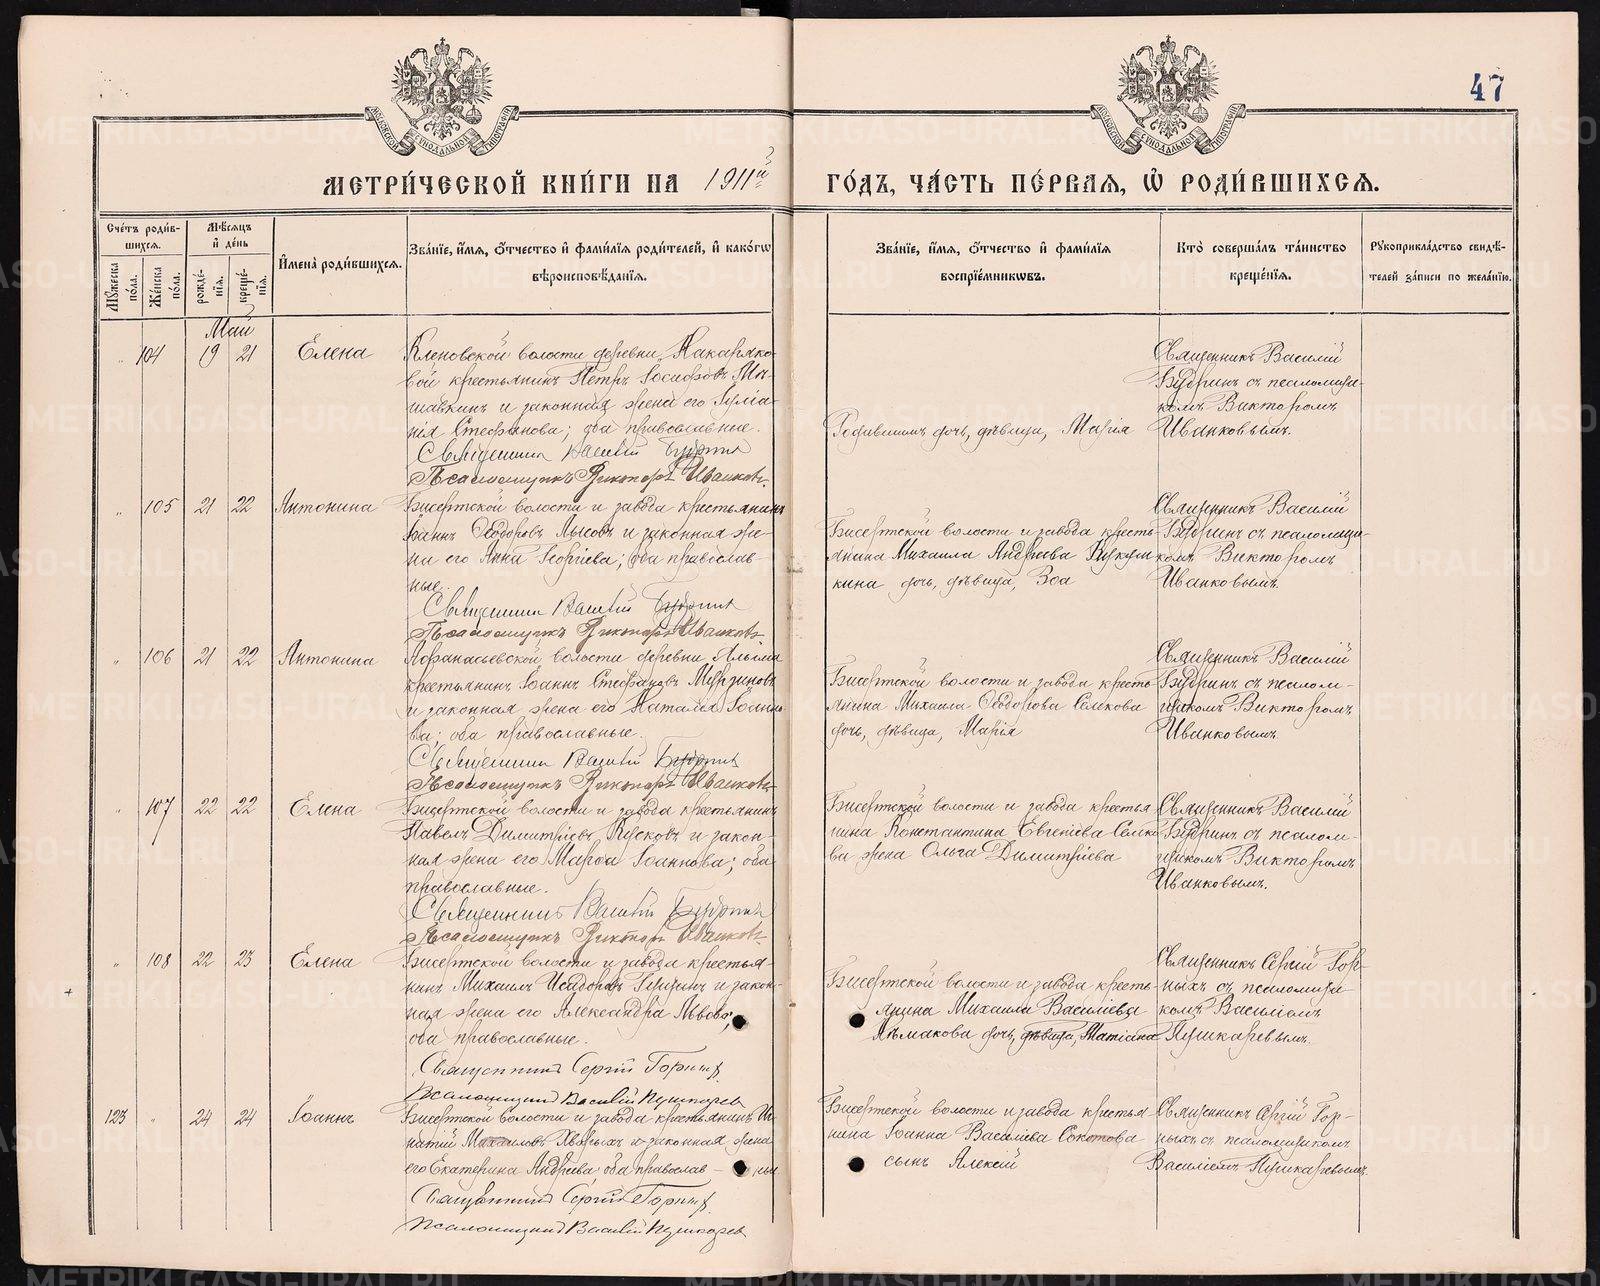 47
МОСКОВСКОЙ СѴНОДАЛЬНОЙ ТИПОГРАФІИ
МОСКОВСКОЙ СѴНОДАЛЬНОЙ ТИПОГРАФІИ
МЕТРИ́ЧЕСКОЙ КНИ́ГИ НА 1911й ГО́ДЪ, ЧА́СТЬ ПЕ́РВАЯ, Ѡ҆ РОДИ́ВШИХСЯ.
Сче́тъ роди́в-
шихся.
Мѣ́сяцъ
и҆ де́нь
Мꙋ́жеска по́ла.
Же́нска по́ла.
рожде́-нїя.
креще́-нїя.
И҆мена̀ роди́вшихся.
Зва́нїе, и҆́мя, ѻ҆́тчество и҆ фами́лїя роди́телей, и҆ како́гѡ
вѣроисповѣ́данїя.
Зва́нїе, и҆́мя, ѻ҆́тчество и҆ фами́лїя
воспрїе́мникѡвъ.
Кто̀ соверша́лъ та́инство
креще́нїя.
Рꙋкоприкла́дство свидѣ́-
телей за́писи по жела́нїю.
Май
" 104 19 21 Елена
Кленовской волости деревни Накаряко-
вой крестьянинъ Петръ Іосифовъ
и законная жена его Іуліа-
нія Стефанова; оба православные.
Священникъ Василій Будринъ
Псаломщикъ Викторъ Иванковъ
Родившихъ дочь, дѣвица, Марія
Священникъ Василій
Будринъ съ псаломщи-
комъ Викторомъ
Иванковымъ.
" 105 21 22 Антонина
Бисертской волости и завода крестьянинъ
Іоаннъ Ѳеодоровъ Лысовъ и законная же-
на его Анна Георгіева; оба православ-
ные.
Священникъ Василій Будринъ
Псаломщикъ Викторъ Иванковъ
Бисертской волости и завода кресть-
янина Михаила Андреева
кина дочь, дѣвица, Зоа
Священникъ Василій
Будринъ съ псаломщи-
комъ Викторомъ
Иванковымъ.
" 106 21 22 Антонина
Афанасьевской волости деревни
крестьянинъ Іоаннъ Стефановъ Мурзиновъ
и законная жена его Наталія Іоанно-
ва; оба православные.
Священникъ Василій Будринъ
Псаломщикъ Викторъ Иванковъ
Бисертской волости и завода кресть-
янина Михаила Ѳеодорова Селкова
дочь, дѣвица, Марія
Священникъ Василій
Будринъ съ псалом-
щикомъ Викторомъ
Иванковымъ.
" 107 22 22 Елена
Бисертской волости и завода крестьянинъ
Павелъ Димитріевъ Кусковъ и закон-
ная жена его Марѳа Іоаннова; оба
православные.
Священникъ Василій Будринъ
Псаломщикъ Викторъ Иванковъ
Бисертской волости и завода крестья-
нина Константина Евгеніева Селко-
ва жена Ольга Димитріева
Священникъ Василій
Будринъ съ псалом-
щикомъ Викторомъ
Иванковымъ.
" 108 22 23 Елена
Бисертской волости и завода крестья-
нинъ Михаилъ Исидоровъ и закон-
ная жена его Александра Львова;
оба православные.
Священникъ Сергій Горныхъ
Псаломщикъ Василій Пушкаревъ
Бисертской волости и завода кресть-
янина Михаила Василіева
дочь, дѣвица, Татіана
Священникъ Сергій Гор-
ныхъ съ псаломщи-
комъ Василіемъ
Пушкаревымъ.
123 " 24 24 Іоаннъ
Бисертской волости и завода крестьянинъ Иг-
натій Михаиловъ Хворыхъ и законная жена
его Екатерина Андреева оба православ-ные
Священникъ Сергій Горныхъ
Псаломщикъ Василій Пушкаревъ
Бисертской волости и завода крестья-
нина Іоанна Василіева Сокотова
сынъ Алексій
Священникъ Сергій Гор-
ныхъ съ псаломщикомъ
Василіемъ Пушкаревымъ
METRIKI.GASO-URAL.RU